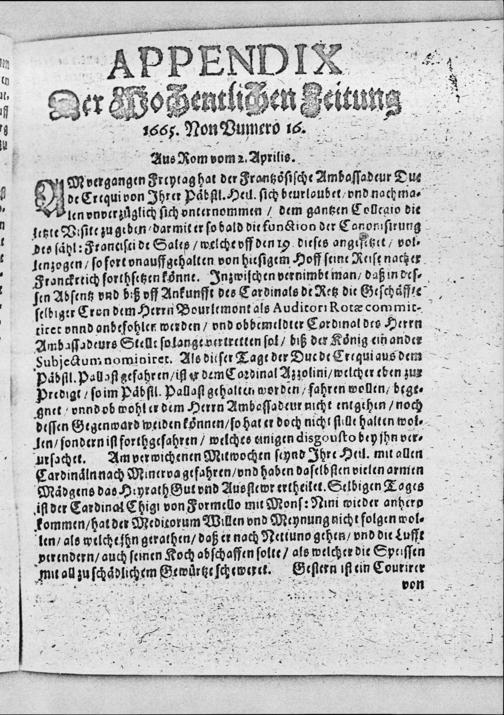 APPENDIX
Der Wochentlichen Zeitung
1665. Non Vumero 16.
Aus Rom vom 2. Aprilis.
AM vergangen Freytag hat der Frantzösische Ambassadeur Duc
de Crequi von Ihrer Päbstl. Heil. sich beurlaubet / und nachma-
len unverzüglich sich unternommen / dem gantzen Collegio die
letzte Visite zu geben / darmit er so bald die function der Canonisirung
des sähl: Francisci de Sales / welche uff den 19. dieses angesetzet / vol-
lenzogen / so fort unauffgehalten von hiesigem Hoff seine Reise nacher
Franckreich forthsetzen könne. Inzwischen vernimbt man / daß in des-
sen Absentz und biß uff Ankunfft des Cardinals de Retz die Geschäffte
selbiger Cron dem Herrn Bourlemont als Auditori Rotæ commit-
tiret unnd anbefohler werden / und obbemeldter Cardinal des Herrn
Ambassadeurs Stelle so lange vertretten sol / biß der König ein ander
Subjectum nominiret. Als dieser Tage der Duc de Crequi aus dem
Päbstl. Pallast gefahren / ist er dem Cardinal Azzolini / welcher eben zur
Predigt / so im Päbstl. Pallast gehalten worden / fahren wollen / bege-
gnet / unnd ob wohl er dem Herrn Ambassadeur nicht entgehen / noch
dessen Gegenward meiden können / so hat er doch nicht stille halten wol-
len / sondern ist forthgefahren / welches einigen disgousto bey ihn ver-
ursachet. Am verwichenen Mitwochen seynd Ihre Heil. mit allen
Cardinäln nach Minerva gefahren / und haben daselbsten vielen armen
Mädgens das Heyrath Gut und Aussteur ertheilet. Selbigen Tages
ist der Cardinal Chigi von Formello mit Mons: Nini wieder anhero
kommen / hat der Medicorum Willen und Meynung nicht folgen wol-
len / als welche ihn gerathen / daß er nach Nettuno gehen / und die Lufft
verendern / auch seinen Koch abschaffen solte / als welcher die Speissen
mit all zu schädlichem Gewürtze schwerer. Gestern ist ein Courirer
von